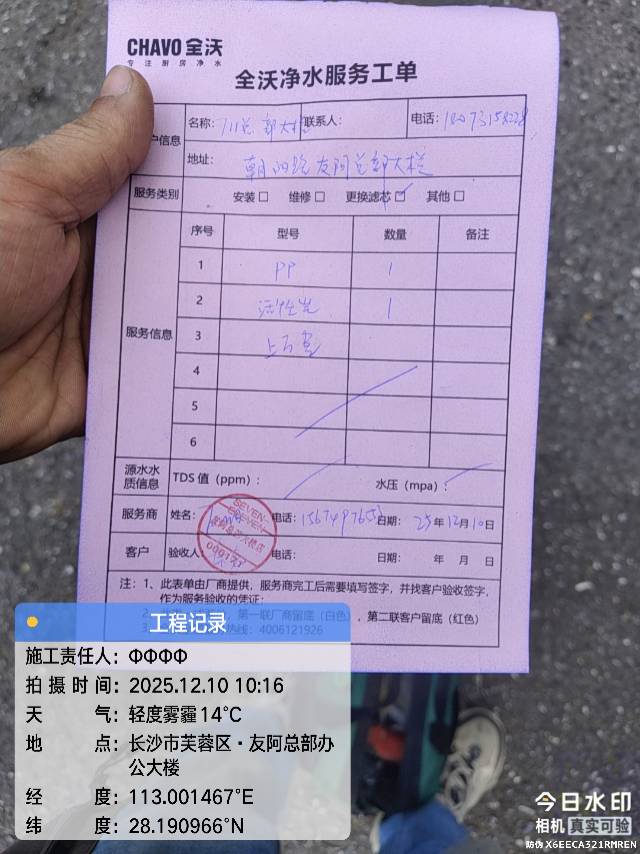 CHAVO 全沃
专注厨房净水
全沃净水服务工单
户信息
名称: 711总部大栏
联系人:
电话:
地址: 朝阳路友阿总部大栏
服务类别
安装□ 维修□ 更换滤芯□ 其他□
服务信息
序号 型号 数量 备注
1 PP 1
2 活性炭 1
3
4
5
6
源水水质信息
TDS 值（ppm）: 水压（mpa）:
服务商 姓名: 电话: 日期: 25年12月10日
客户 验收人: 电话: 日期: 年 月 日
SEVEN-ELEVEN
注: 1、此表单由厂商提供，服务商完工后需要填写签字，并找客户验收签字，
作为服务验收的凭证;
第一联厂商留底（白色），第二联客户留底（红色）
热线: 4006121926
工程记录
施工责任人: ФФФФ
拍摄时间: 2025.12.10 10:16
天气: 轻度雾霾14℃
地点: 长沙市芙蓉区·友阿总部办
公大楼
经度: 113.001467°E
纬度: 28.190966°N
今日水印
相机 真实可验
防伪 X6EECA321RMREN